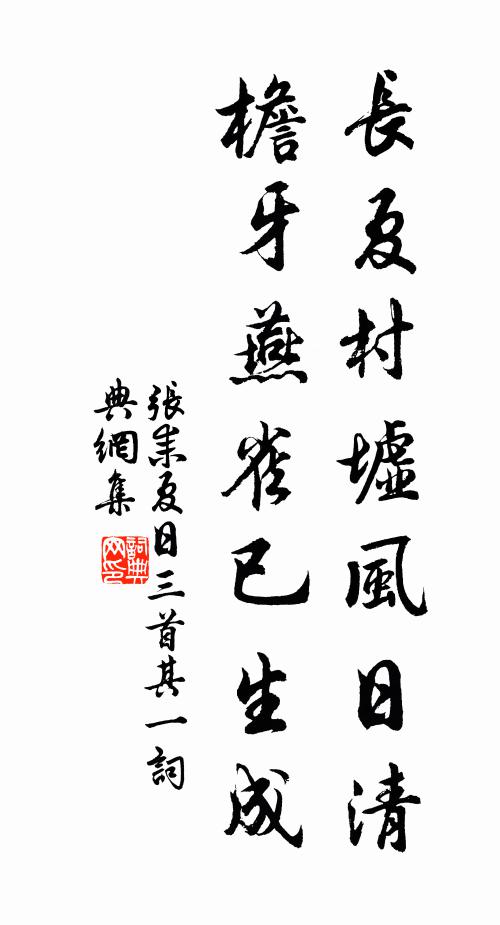 長夏村墟風日清
檐牙燕雀已生成
張耒夏日三首其一詞
典網集
詞典
网印